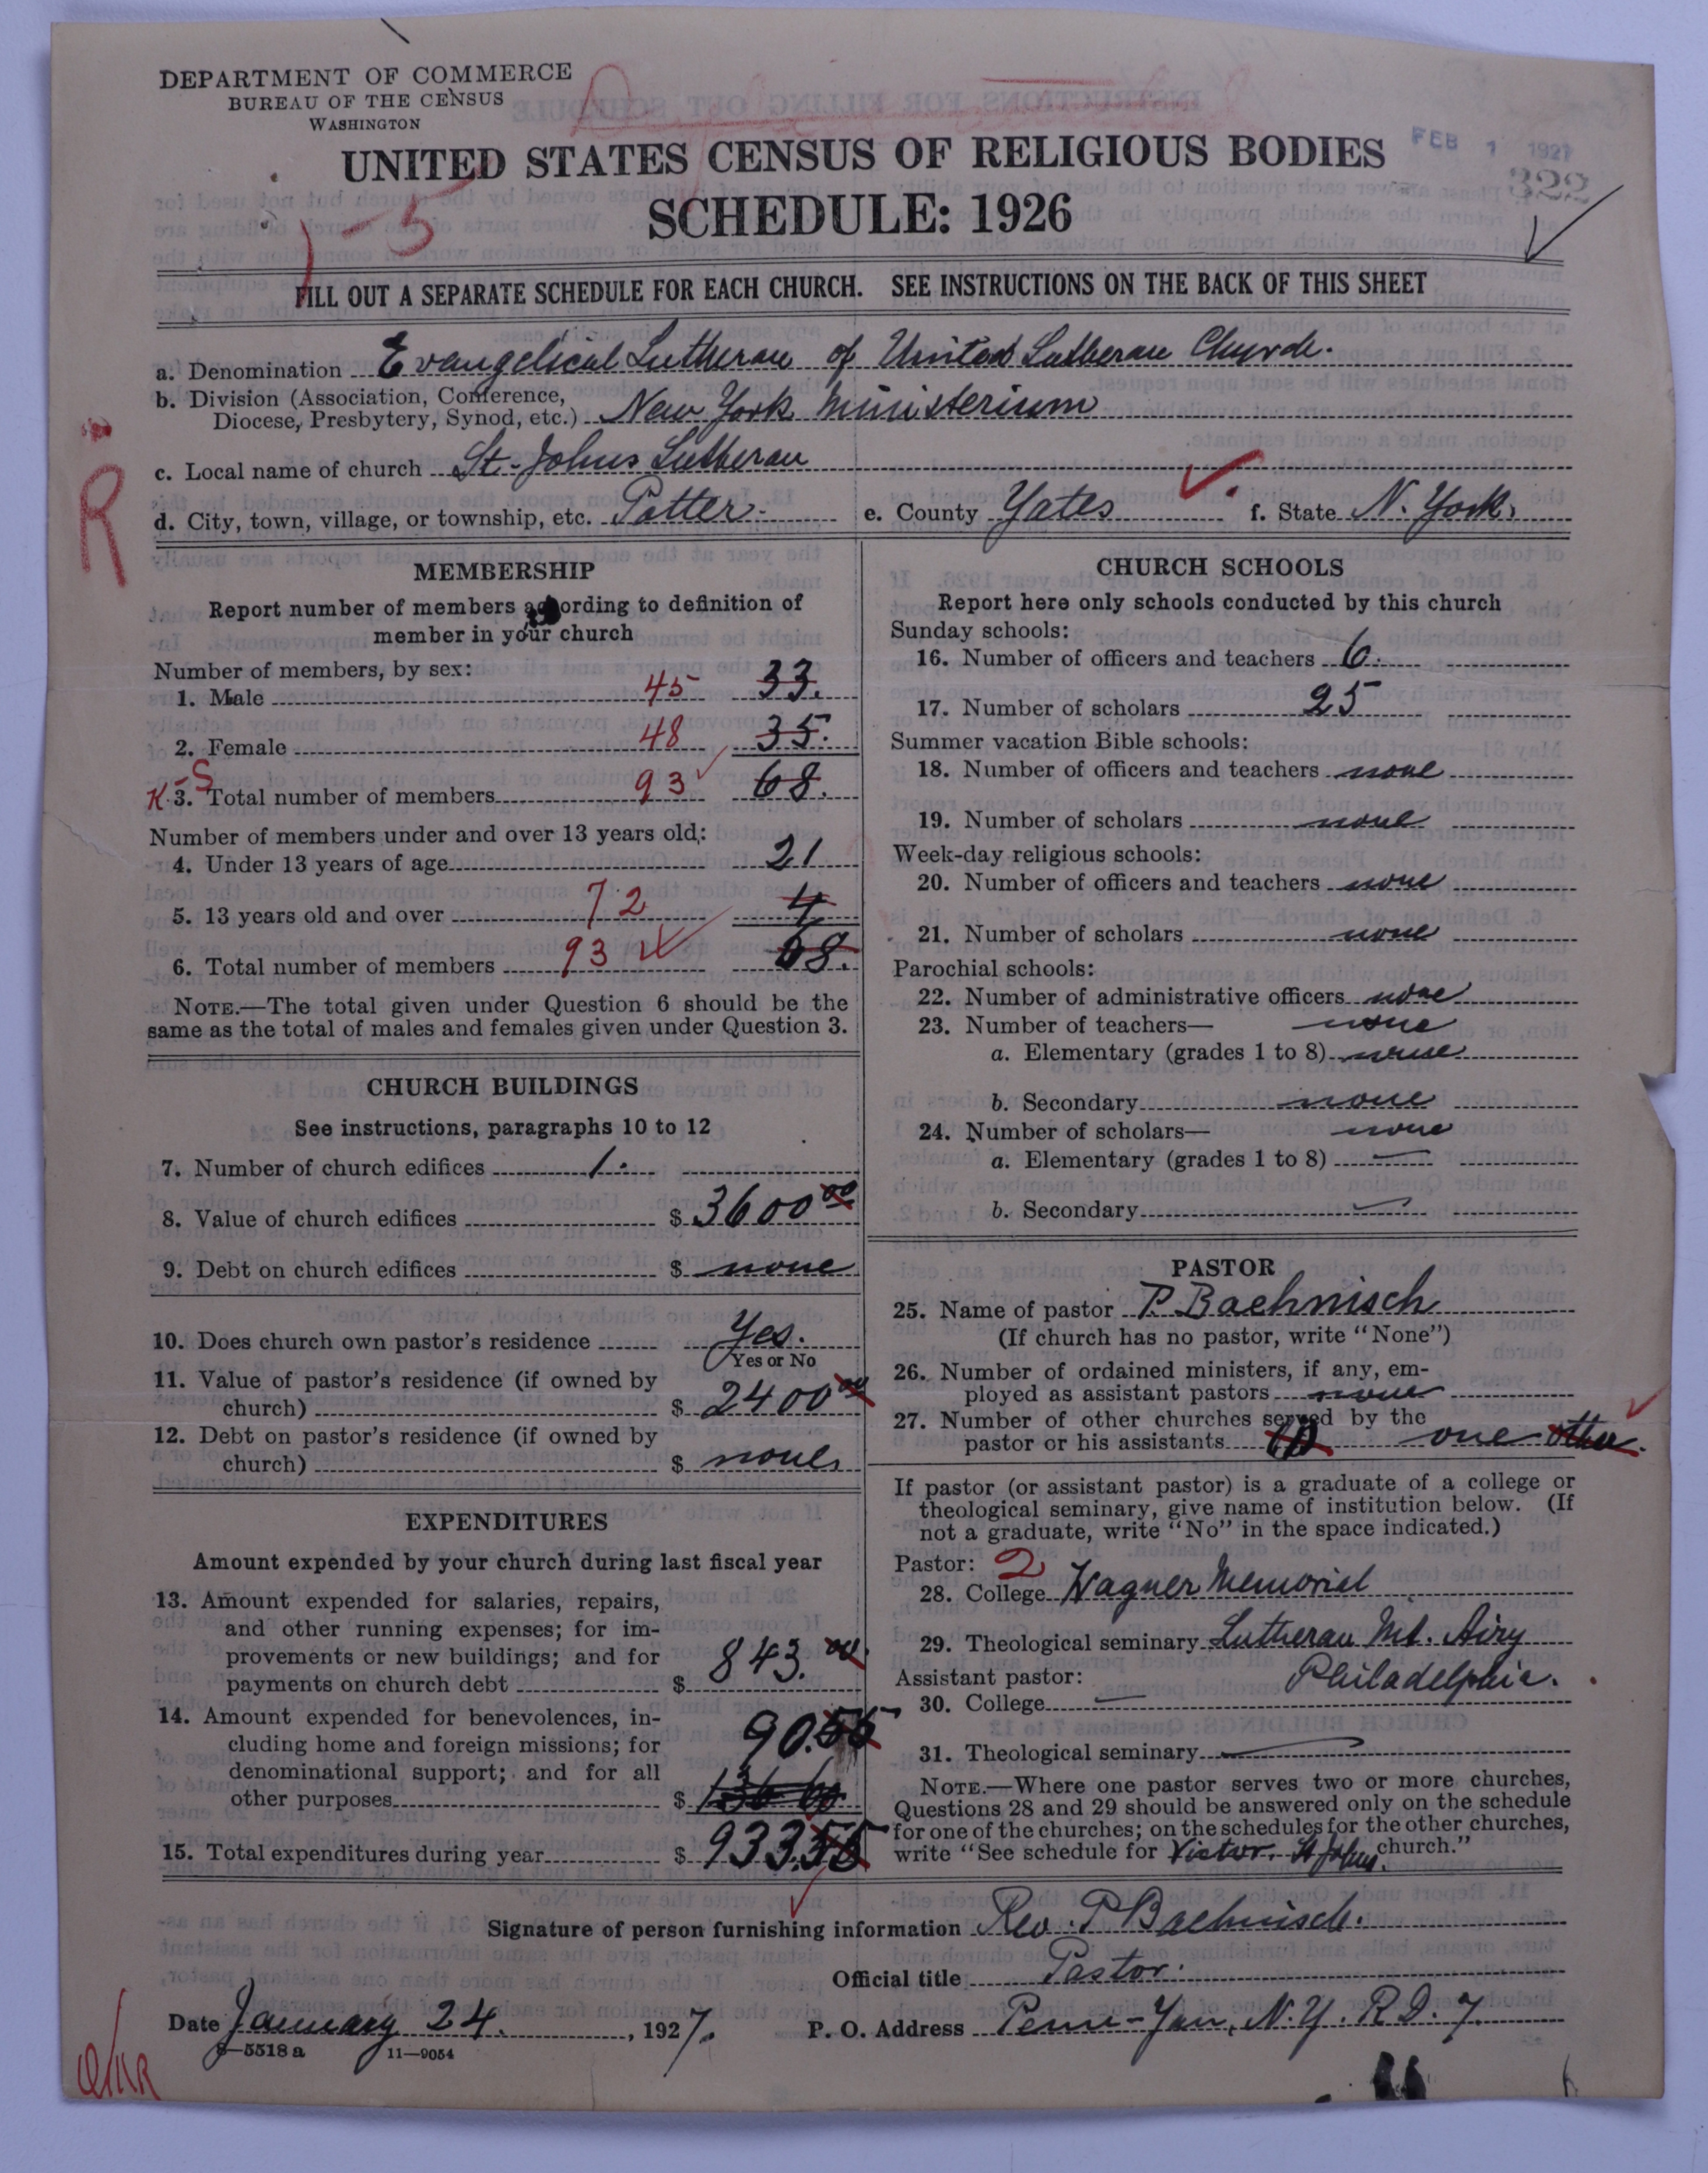 DEPARTMENT OF COMMERCE
BUREAU OF THE CENSUS
WASHINGTON
FEB 1 1927
322
UNITED STATES CENSUS OF RELIGIOUS BODIES
SCHEDULE: 1926
1-5
FILL OUT A SEPARATE SCHEDULE FOR EACH CHURCH. SEE INSTRUCTIONS ON THE BACK OF THIS SHEET
a. Denomination Evangelical Lutheran of United Lutheran Church.
b. Division (Association, Conference,
Diocese, Presbytery, Synod, etc.) New York Ministerium
c. Local name of church St. Johns Lutheran
d. City, town, village, or township, etc. Potter. e. County Yates f. State N. York.
R
MEMBERSHIP
Report number of members according to definition of
member in your church
Number of members, by sex:
1. Male 45 33.
2. Female 48 35.
K-S
3. Total number of members 93 68.
Number of members under and over 13 years old:
4. Under 13 years of age 21
5. 13 years old and over 72 4
6. Total number of members 93 68.
NOTE.—The total given under Question 6 should be the
same as the total of males and females given under Question 3.
CHURCH BUILDINGS
See instructions, paragraphs 10 to 12
7. Number of church edifices 1.
8. Value of church edifices $ 3600 00
9. Debt on church edifices $ none
10. Does church own pastor's residence Yes.
Yes or No
11. Value of pastor's residence (if owned by
church) $ 2400 00
12. Debt on pastor's residence (if owned by
church) $ none
EXPENDITURES
Amount expended by your church during last fiscal year
13. Amount expended for salaries, repairs,
and other running expenses; for im-
provements or new buildings; and for
payments on church debt $ 843.00
14. Amount expended for benevolences, in-
cluding home and foreign missions; for
denominational support; and for all
other purposes $ 90.55
15. Total expenditures during year $ 933.55
CHURCH SCHOOLS
Report here only schools conducted by this church
Sunday schools:
16. Number of officers and teachers 6.
17. Number of scholars 25
Summer vacation Bible schools:
18. Number of officers and teachers none
19. Number of scholars none
Week-day religious schools:
20. Number of officers and teachers none
21. Number of scholars none
Parochial schools:
22. Number of administrative officers none
23. Number of teachers— none
a. Elementary (grades 1 to 8) none
b. Secondary none
24. Number of scholars— none
a. Elementary (grades 1 to 8) —
b. Secondary —
PASTOR
25. Name of pastor P. Baehnisch
(If church has no pastor, write "None")
26. Number of ordained ministers, if any, em-
ployed as assistant pastors none
27. Number of other churches served by the
pastor or his assistants one other.
If pastor (or assistant pastor) is a graduate of a college or
theological seminary, give name of institution below. (If
not a graduate, write "No" in the space indicated.)
Pastor: 2
28. College Wagner Memorial
29. Theological seminary Lutheran Mt. Airy
Philadelphia.
Assistant pastor:
30. College —
31. Theological seminary —
NOTE.—Where one pastor serves two or more churches,
Questions 28 and 29 should be answered only on the schedule
for one of the churches; on the schedules for the other churches,
write "See schedule for Victor. St Johns. church."
Signature of person furnishing information Rev. P Baehnisch.
Official title Pastor.
Date January 24., 1927. P. O. Address Penn-Yan, N.Y. R.D. 7.
8—5518 a 11—9054